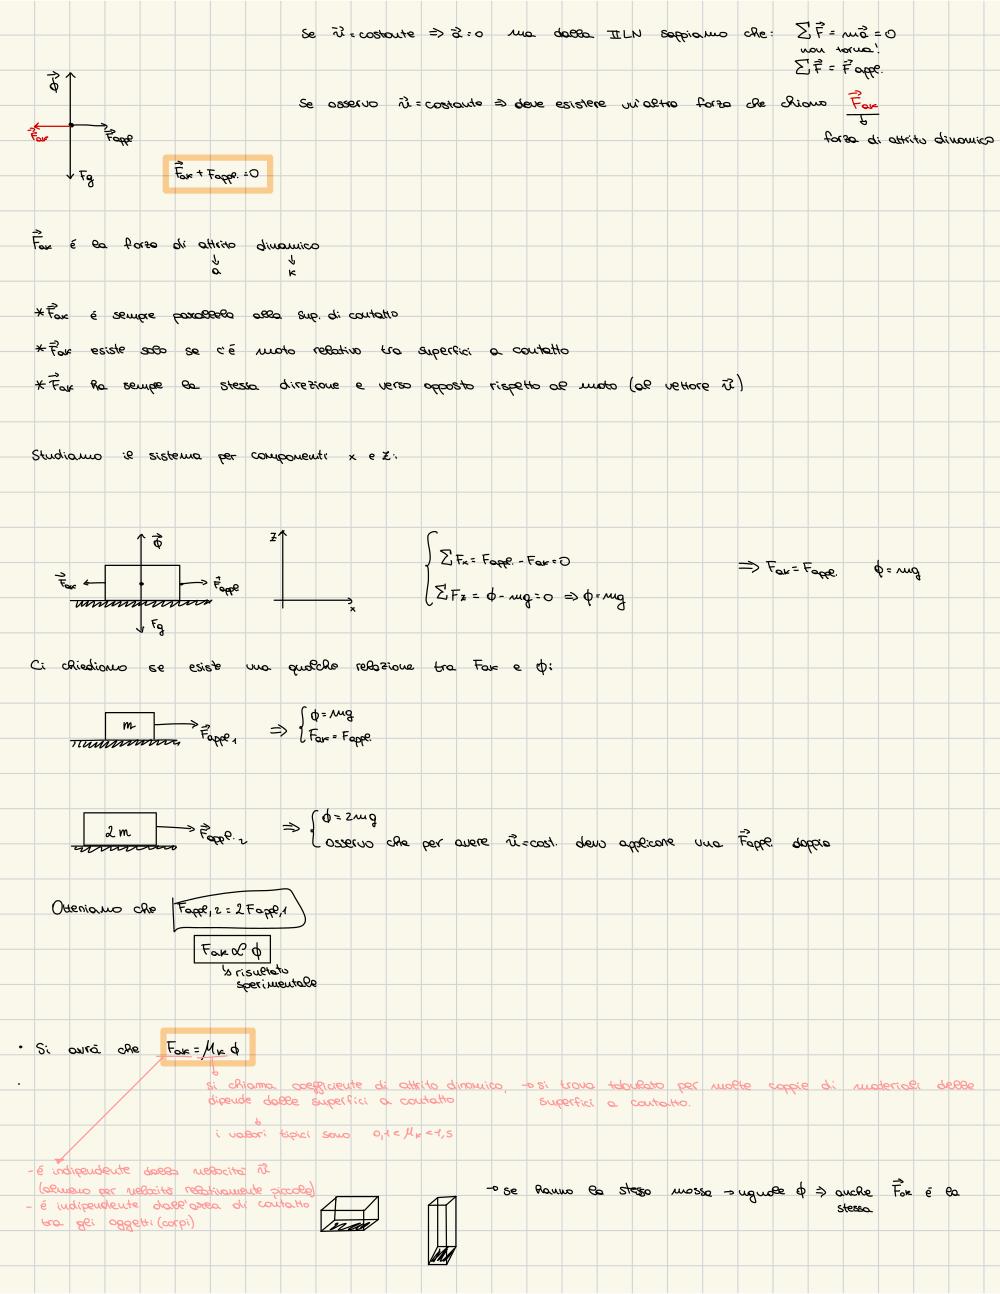 Se v⃗ = costante ⇒ a⃗ = 0 ma dalla II LN sappiamo che: ∑F⃗ = ma⃗ = 0
non torna!
∑F⃗ = F⃗appl.
Se osservo v⃗ = costante ⇒ deve esistere un'altra forza che chiamo F⃗ak
forza di attrito dinamico
ϕ⃗
F⃗ak
F⃗appl
Fg
F⃗ak + Fappl. = 0
F⃗ak é la forza di attrito dinamico
a k
* F⃗ak é sempre parallela alla sup. di contatto
* F⃗ak esiste solo se c'é moto relativo tra superfici a contatto
* F⃗ak ha sempre la stessa direzione e verso opposto rispetto al moto (al vettore v⃗)
Studiamo il sistema per componenti x e z:
ϕ⃗
F⃗ak
F⃗appl
Fg
z
x
∑Fx = Fappl. - Fak = 0
∑Fz = ϕ - mg = 0 ⇒ ϕ = mg
⇒ Fak = Fappl. ϕ = mg
Ci chiediamo se esiste una qualche relazione tra Fak e ϕ:
m F⃗appl.1 ⇒ ϕ = mg
Fak = Fappl.
2m F⃗appl.2 ⇒ ϕ = 2mg
osservo che per avere v⃗ = cost. devo applicare una F⃗appl. doppia
Otteniamo che Fappl,2 = 2Fappl,1
Fak ∝ ϕ
↳ risultato
sperimentale
• Si avrà che Fak = μk ϕ
si chiama coefficiente di attrito dinamico, → si trova tabulato per molte coppie di materiali delle
dipende dalle superfici a contatto superfici a contatto.
i valori tipici sono 0,1 < μk < 1,5
- é indipendente dalla velocità v⃗
(almeno per velocità relativamente piccole)
- é indipendente dall'area di contatto
tra gli oggetti (corpi)
→ se hanno la stessa massa → uguale ϕ ⇒ anche F⃗ak é la
stessa